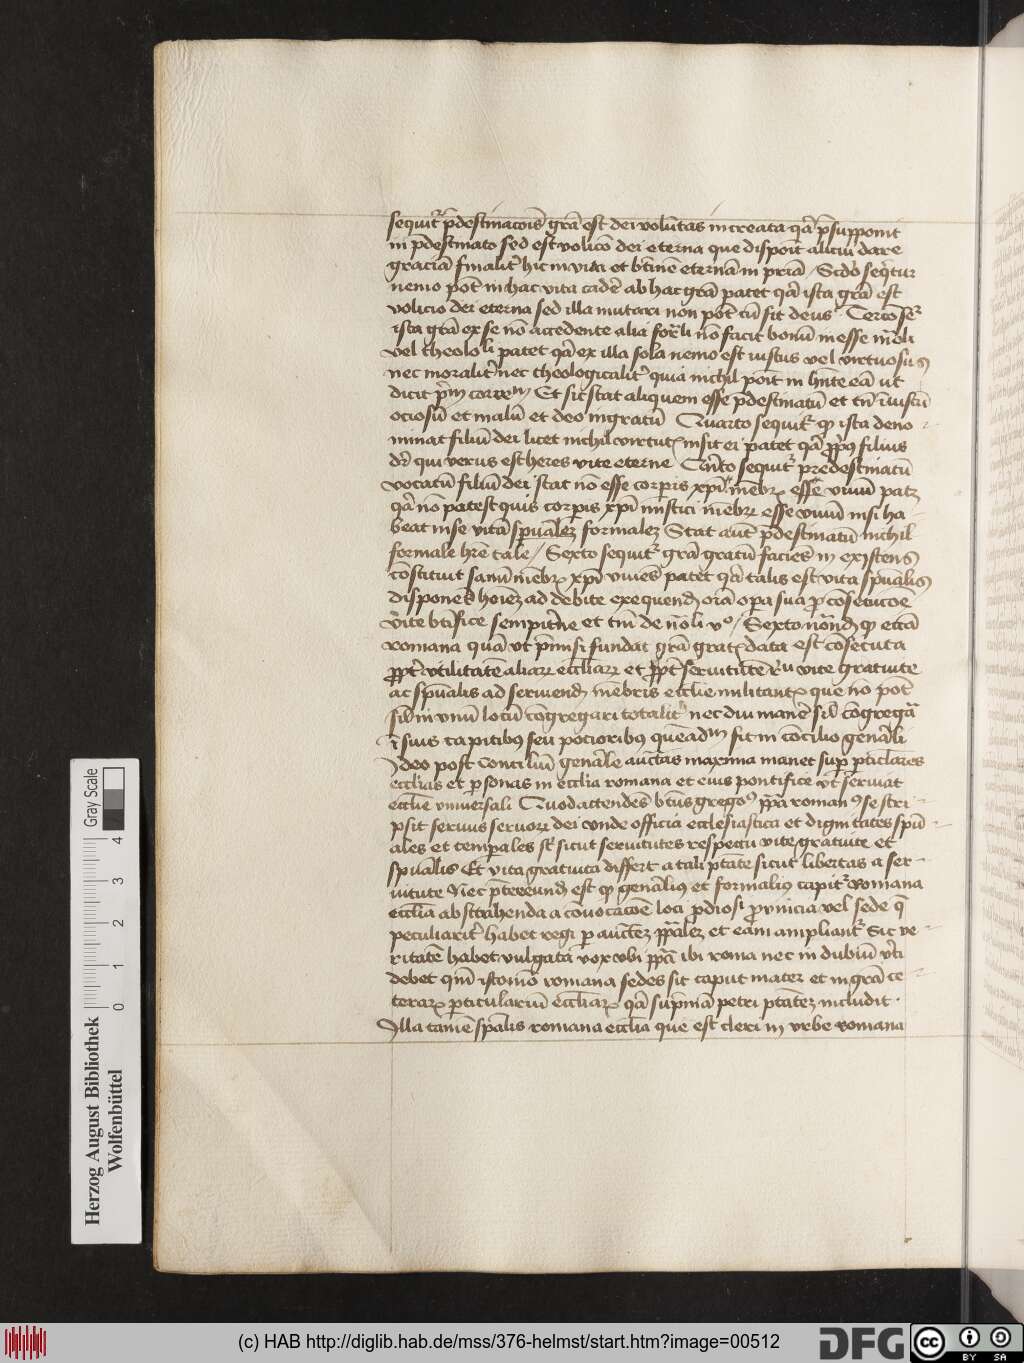 sequitᵣ p̄destinacōis grā est dei volūtas increata qā p̄supponit
in p̄destinato sed est volicō dei eterna que dispōit alicui dare
graciā finalitˀ hic in via et btīnē eternā in pr̄ia / Scd̓o seq̄tur
nemo pōt in hac vita cadē ab hac grā patet qā ista grā est
volicio dei eterna sed illa mutari non pōt cū sit deus Tercō seꝛ̄
ista grā ex se nō accedente alia for̄li nō facit bonū in esse mōli
vel theololi patet qā ex illa sola nemo est iustus vel virtuosus
nec moralitˀ nec theologicalitˀ quia nichil pōit in hn̄te eā ut
dicit Et sic stat aliquem esse p̄destinatū et tn̄ iniustū
ociosū et malū et deo ingratū Quarto sequitᵣ ꝙ ista deno
minat filiū dei licet nichil virtutꝭ insit ei patet qā filius
dꝛ̄ qui verus est heres vite eterne Qūito sequitᵣ predestinatū
vocatū filiū dei stat nō esse corporis xp̄i mēbꝝ esse vivū patꝫ
qā nō potest quis corporis xp̄i mistici mēbꝝ esse vivū nisi ha
beat in se vitā sp̄ualeꝫ formaleꝫ Stat aut p̄destinatū nichil
formale hr̄e tale / Sexto sequitᵣ grā gratū faciēs in existens
cōstituit sanū mēbꝝ xp̄i viuēs patet qā talis est vita sp̄ualis
disponēs hoieꝫ ad debite exequendū oīā opera sua ꝓ cōsecucōe
vite btīfice sempitˀne et tm̄ de v° / Sexto nōndū ꝙ ecc̄a
romana quā ut p̄misi fundat grā gratꝭ data est cōsecuta
ꝓptˀ utilitatē aliaꝝ ecc̄liaꝝ et ꝓpt̄ seruitutē vite gratuite
ac sp̄ualis ad seruiendū mēbris ecclīe militantꝭ que nō pōt
sīl in vnū locū cōgregari totalitˀ nec diu manē sīl cōgregā
ī suis capitibꝰ seu pocioribꝰ quēadm̄ fit in cōcilio genāli
Ideo post Conciliū genāle auctās maxima manet suꝑ ꝑticlares
ecclīas et ꝑsonas in ecclīa romana et eius pontifice ut seruiat
ecclīe vniuersali Quod attendēs bt̄us gregoꝰ pp̄a romanꝰ se scri
psit seruus seruoꝝ dei vnde officia ecclesiastica et dignitates spū
ales et temporales sūt sicut seruitutes respectu vite gratuite et
sp̄ualis Et vita gratuita differt a tali ptāte sicut libertas a ser
uitute Nec p̄tereundū est ꝙ genālius et formalius capitᵣ Romana
ecclīa abstrahenda a cōuocacōe loci p̄diosi ꝓvincia vel sede q̄
peculiaritˀ habet regi ꝑ auctēꝫ pp̄aleꝫ et eam ampliantᵣ Sic ve
ritatē habet vulgata vox vbi pp̄a ibi roma nec in dubiū vˀti
debet q̄n istomō romana sedes sit caput mater et mgrā ce
teraꝝ ꝑticulariū ecc̄liaꝝ qā sup̄mā petri ptāteꝫ includit
Illa tamē sp̄alis romana ecclīa que est cleri in vrbe romana
Herzog August Bibliothek
Wolfenbüttel
0 1 2 3 4 Gray Scale
(c) HAB http://diglib.hab.de/mss/376-helmst/start.htm?image=00512
DFG cc BY SA